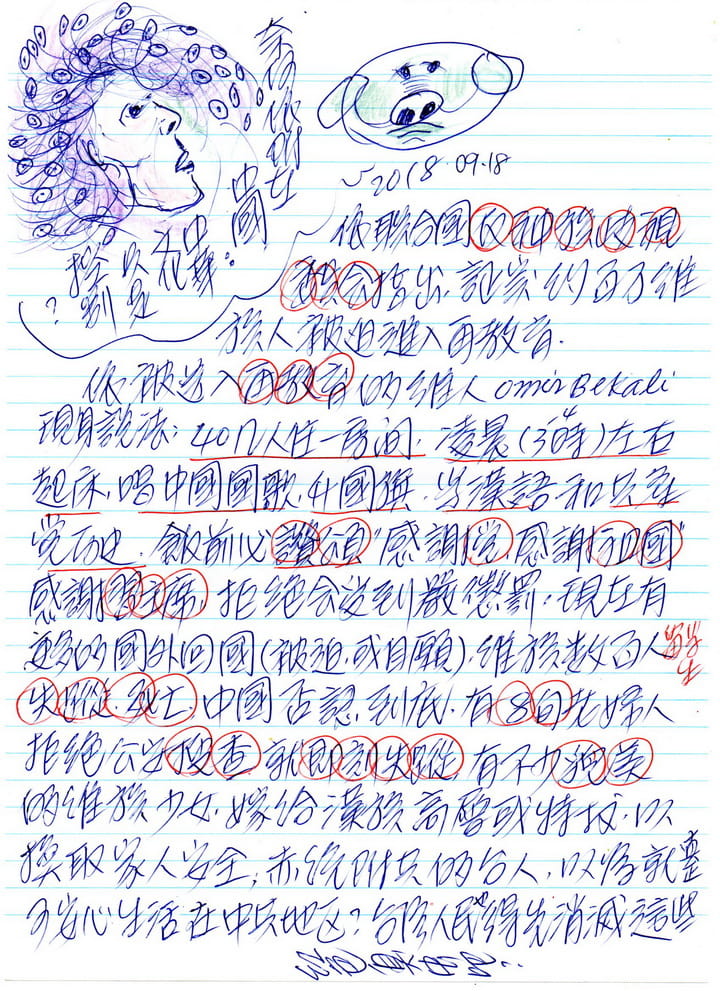 2018.09.18
依聯合國反種族歧視
委員會指出,証案約百万維
族人被迫進入再教育.
依被送入再教育的維人 omir Bekali
現身說法: 40几人住一房间. 凌晨(3時)左右
起床,唱中國國歌,升國旗,学漢語和共產
党历史.飯前必讚頌"感謝党,感謝祖國"
感謝習主席,拒絕会受到嚴懲罰.現在有
更多的國外回國(被迫,或自願),維族数百人留学生
失踪,死亡,中國否認到底.有8旬老婦人
拒絕公安搜查就即刻失踪,有不少絕美
的維族少女,嫁給漢族高層或特权,以
換取家人安全,赤統附共的台人,以為就
可安心生活在中共地区?台湾人民也得先消滅這些